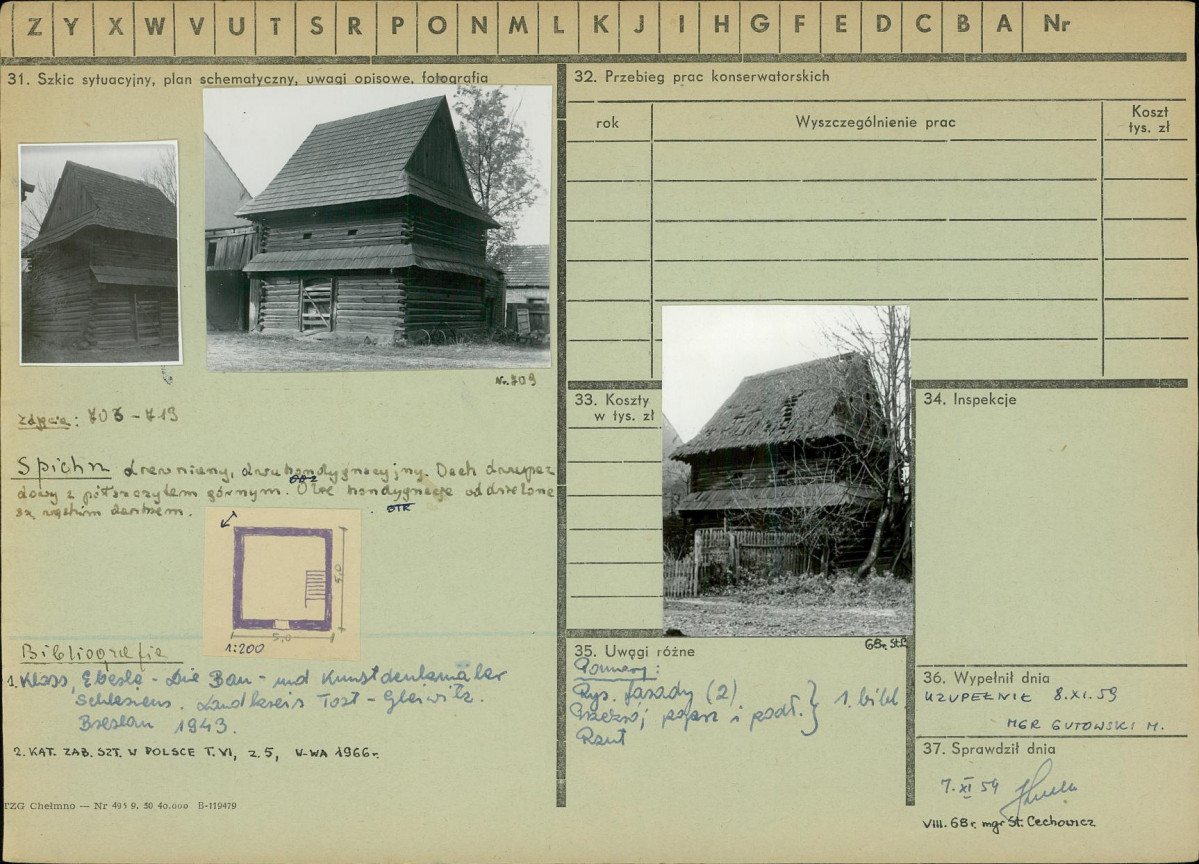 Z Y X W V U T S R P O N M L K J I H G F E D C B A Nr
31. Szkic sytuacyjny, plan schematyczny, uwagi opisowe, fotografia
Nr. 709
Zdjęcia: 703 - 713
Spichrz drewniany, dwukondygnacyjny. Dach
dowy z półszczytem górnym. Obie kondygnacje oddzielone
są wąskim daszkiem.
5,0
5,0
1:200
Bibliografia
1. Kloss, Ebesle - Die Bau - und Kunstdenkmäler
Schlesiens. Landkreis Tost - Gleiwitz.
Breslau 1943.
2. KAT. ZAB. SZT. W POLSCE T. VI, z. 5, W-WA 1966r.
PZG Chełmno — Nr 495 9. 50 40.000 B-119479
32. Przebieg prac konserwatorskich
rok
Wyszczególnienie prac
Koszt
tys. zł
33. Koszty
w tys. zł
34. Inspekcje
68r. St.C
35. Uwagi różne
Pomiary:
Rys. fasady (2)
Przekrój poprz i podł. } 1. bibl.
Rzut
36. Wypełnił dnia
UZUPEŁNIŁ 8.XI.59
MGR GUTOWSKI M.
37. Sprawdził dnia
7.XI 59
VIII. 68 r. mgr St. Cechowicz